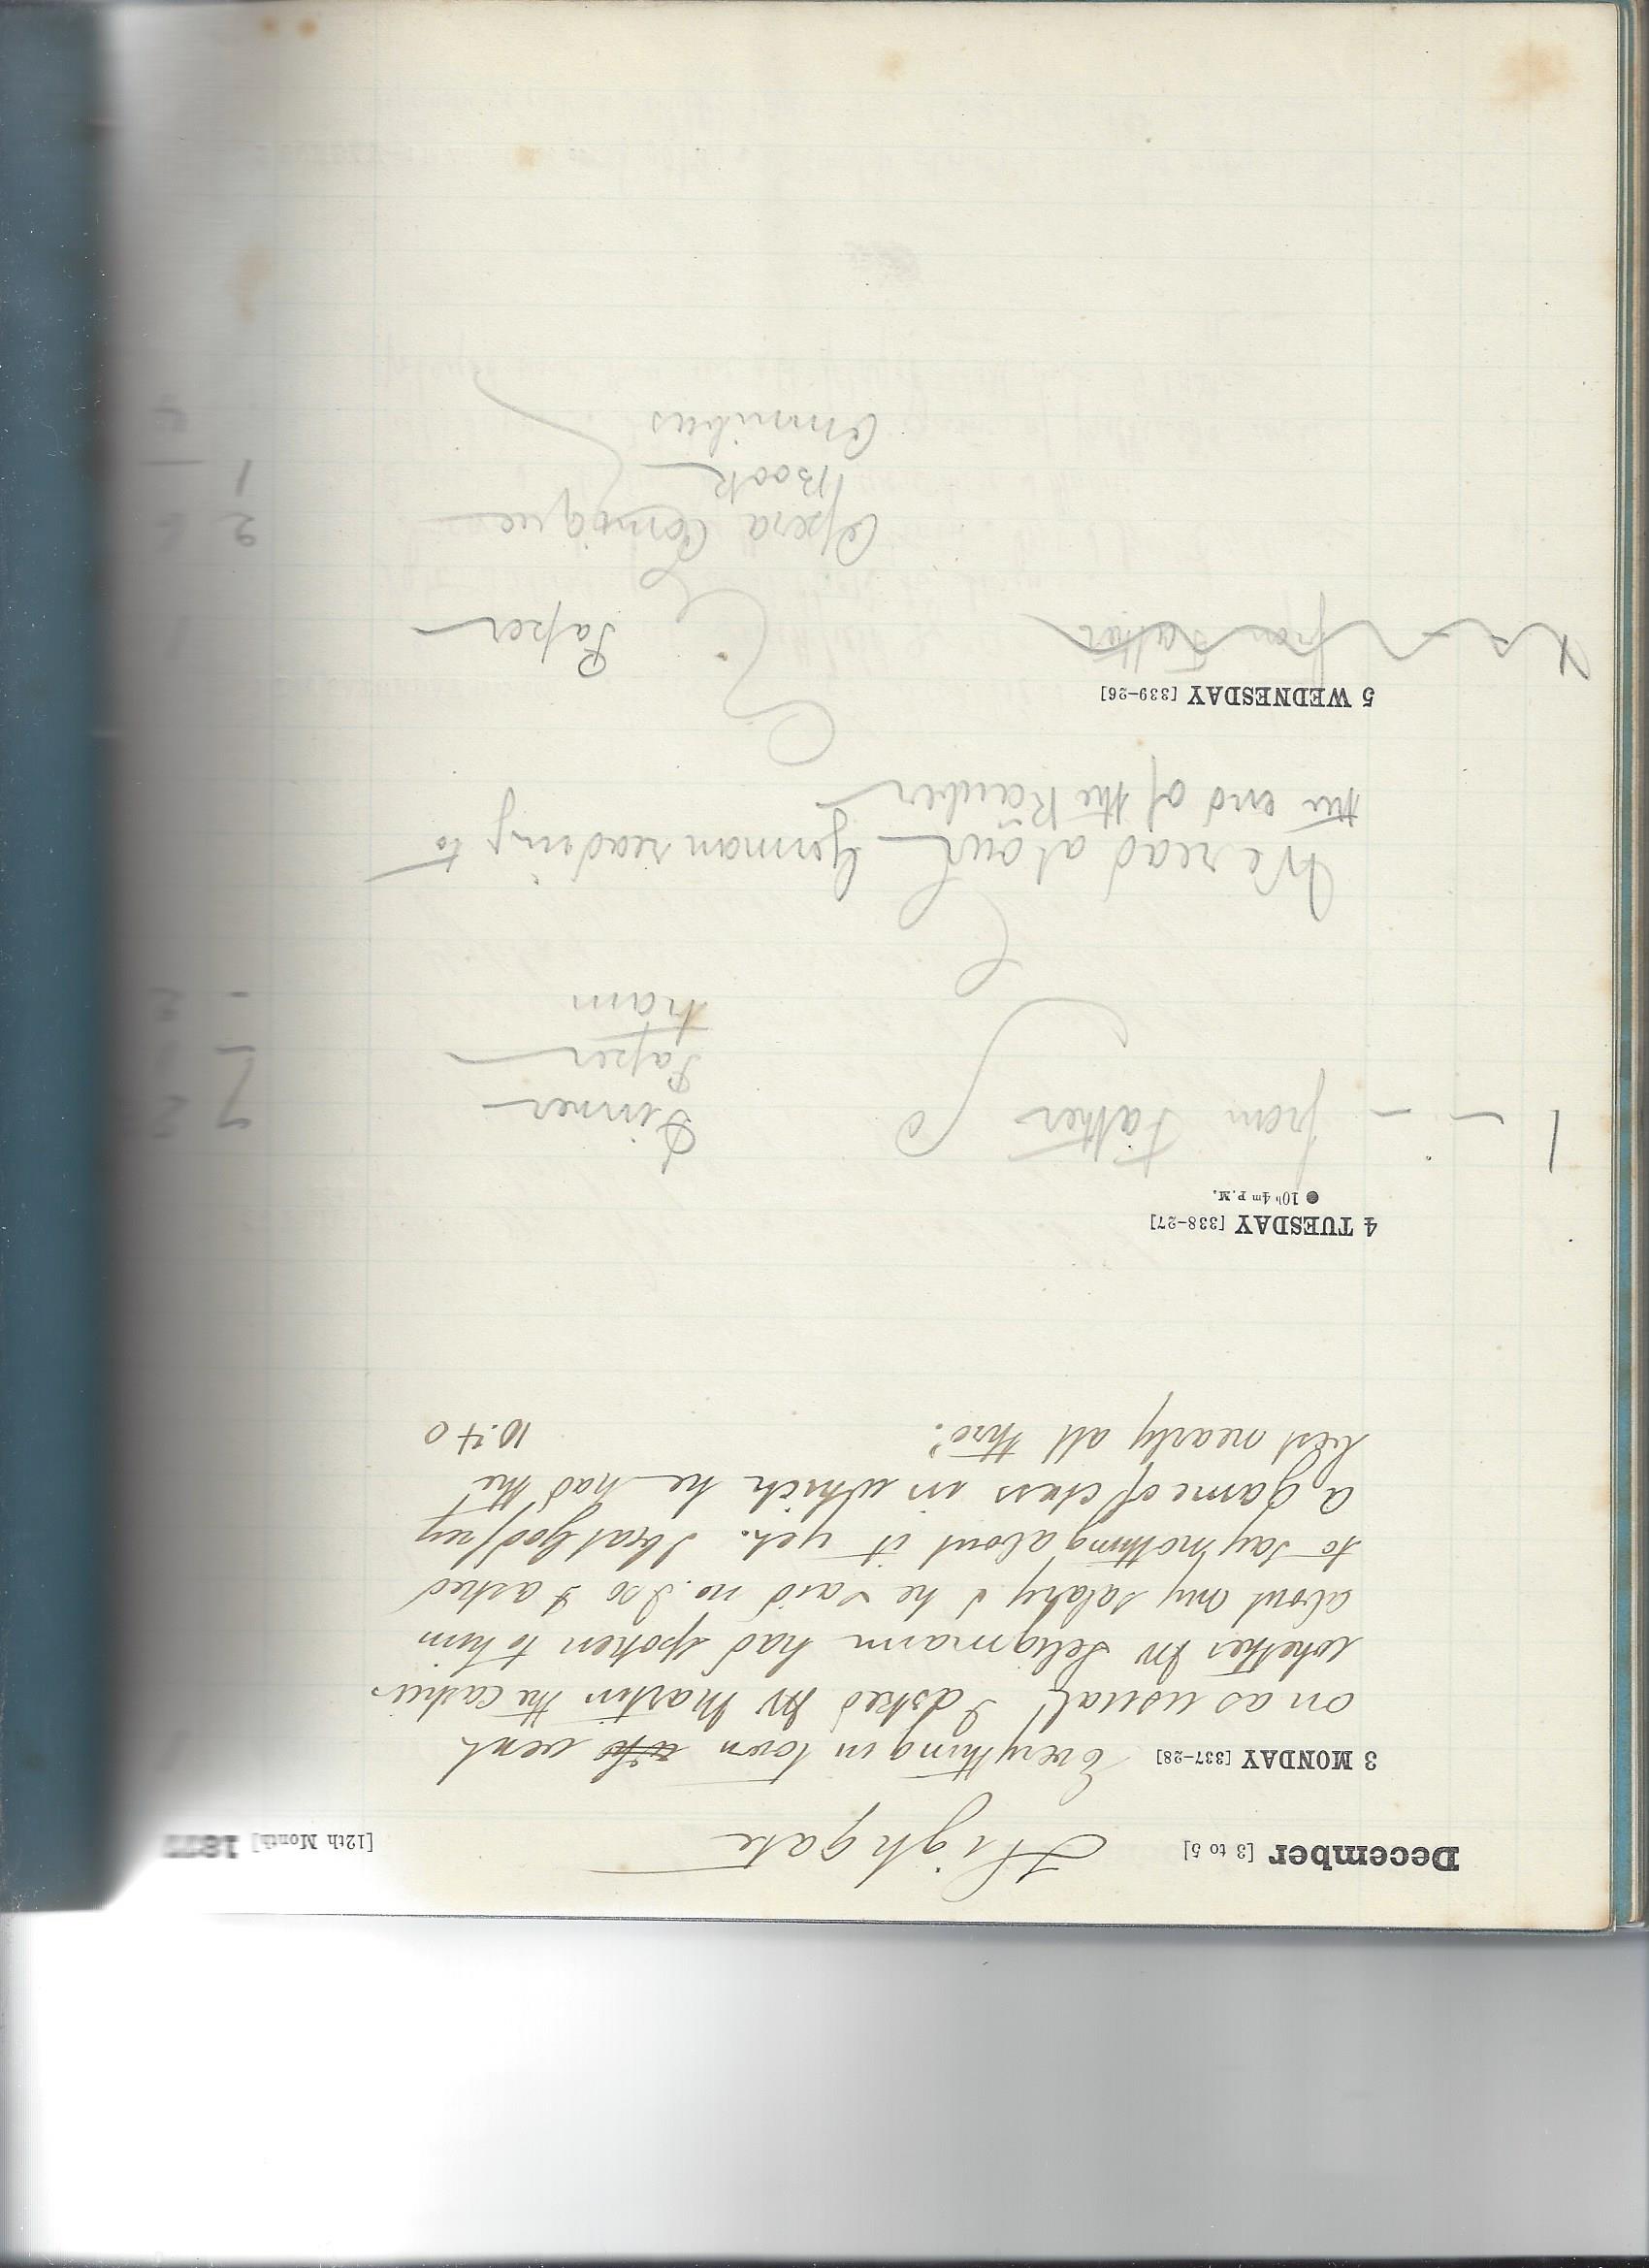 December [3 to 5] Highgate [12th Month] 1877
3 MONDAY [337-28] Everything in town went
on as usual. I asked Mr Martin the cashier
whether Mr Seligmann had spoken to him
about my salary & he said no. So I asked
to say nothing about it yet. I beat Godfrey
a game of chess in which he had the
best nearly all thro'. 10.40
4 TUESDAY [338-27]
● 10h 4m P.M.
1 - - from Father Dinner
Paper -
tram - 2
We read at our German reading to
the end of the Räuber
5 WEDNESDAY [339-26]
from Father Paper
Opera Comique 2 6
Book 1 -
Omnibus